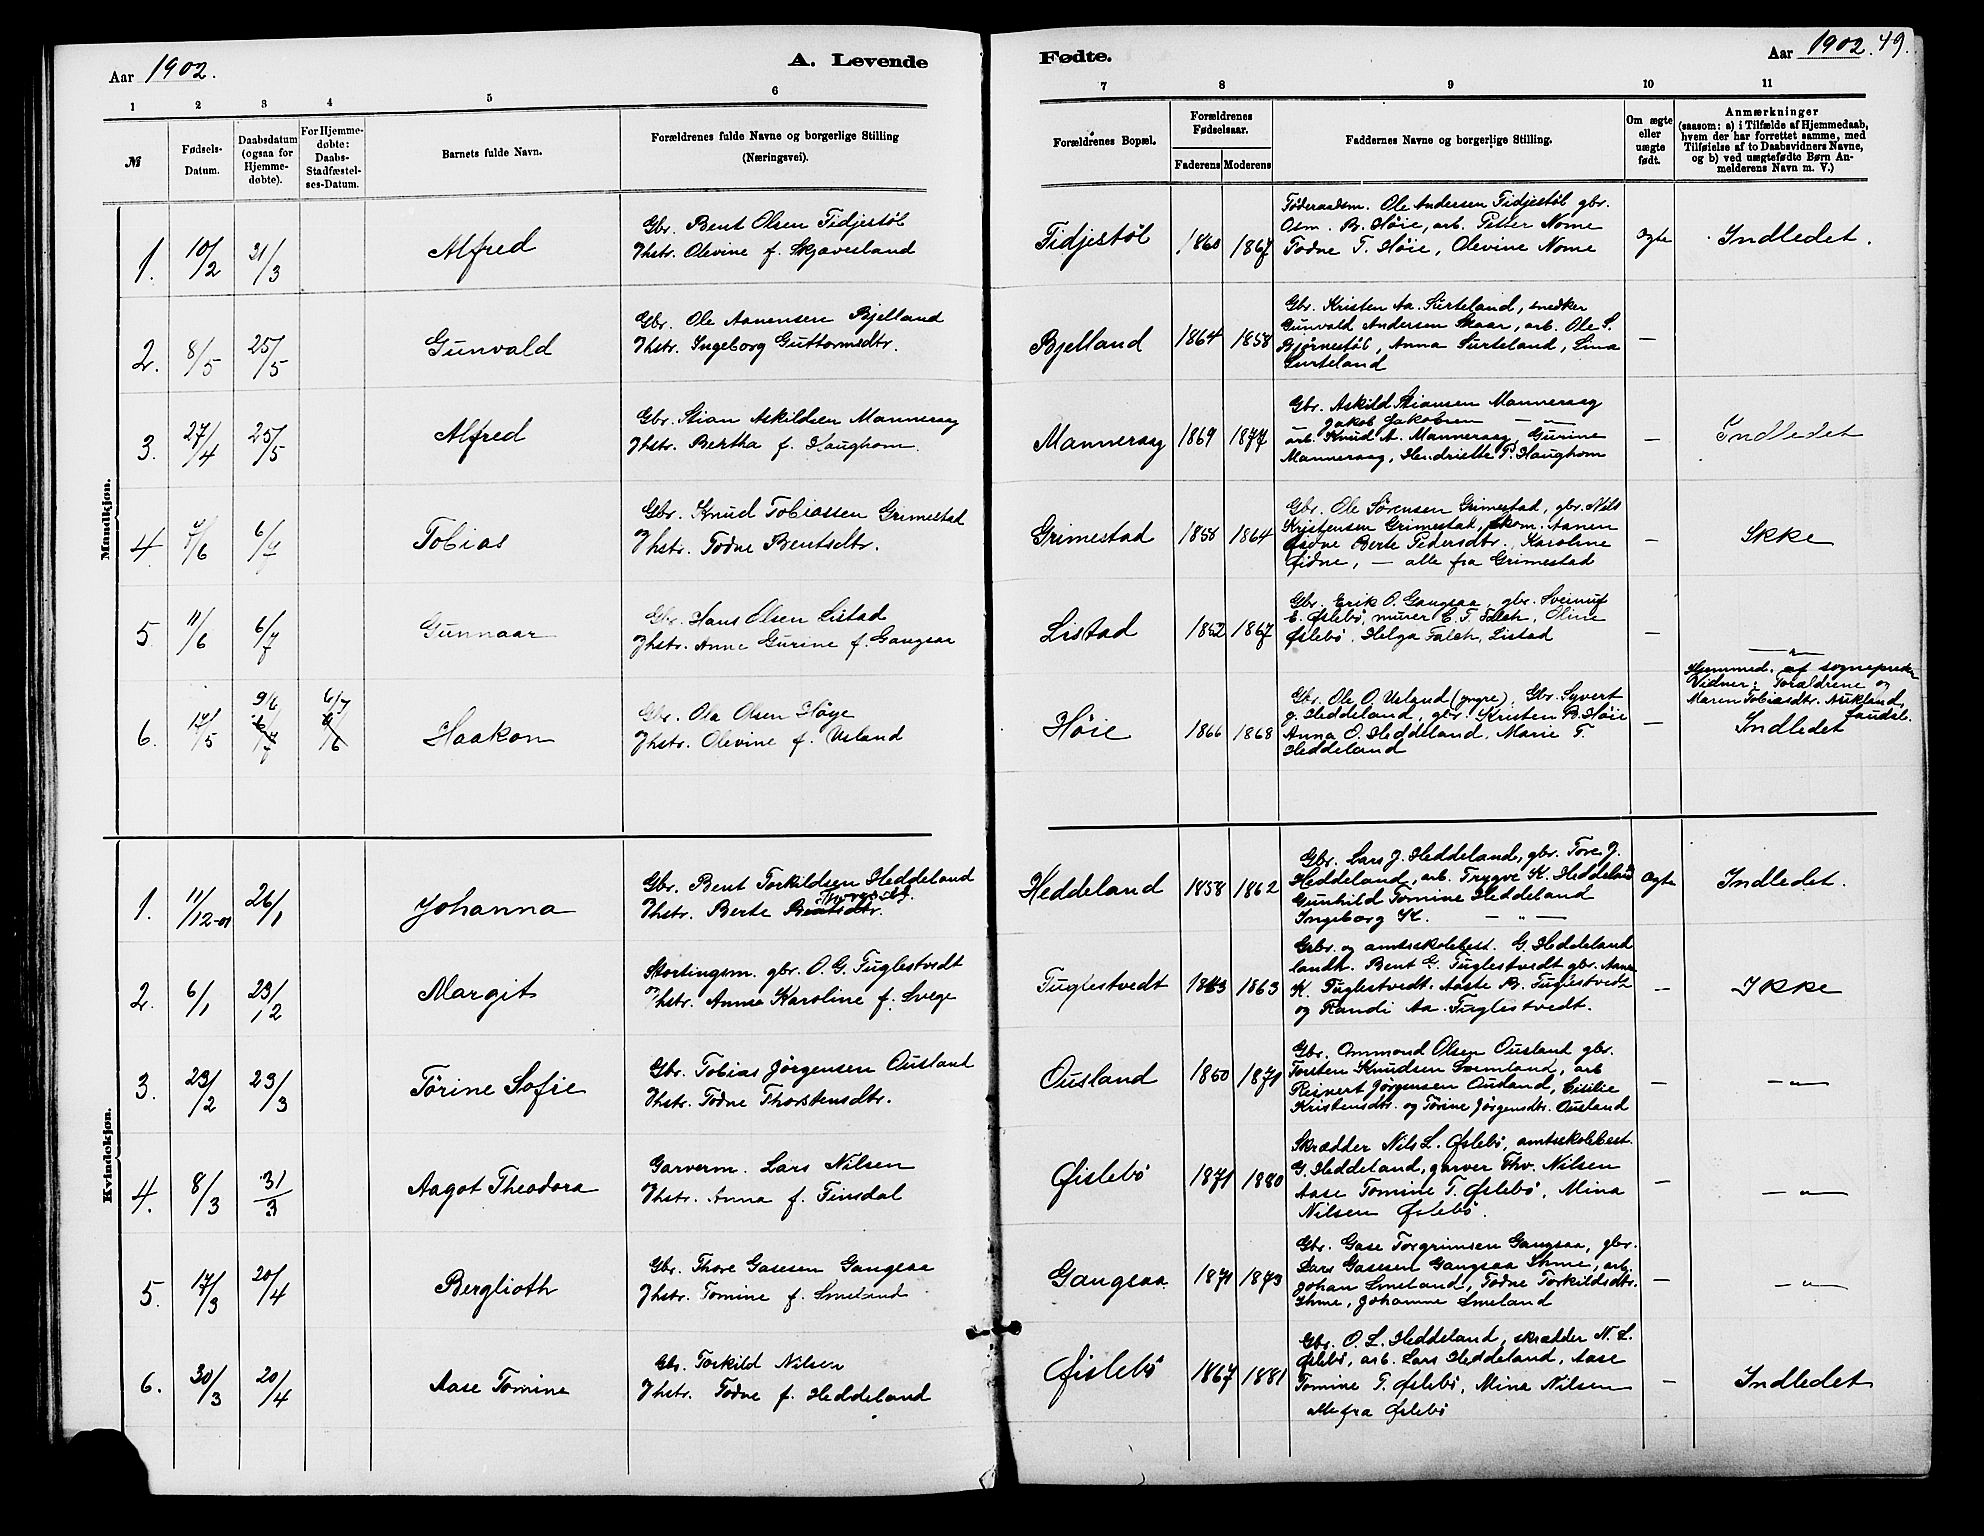 Aar 1902.
A. Levende
Fødte.
Aar 1902. 49.
1 2 3 4 5 6 7 8 9 10 11
№
Fødsels-
Datum.
Daabsdatum
(ogsaa for
Hjemme-
døbte).
For Hjemme-
døbte:
Daabs-
Stadfæstel-
ses-Datum.
Barnets fulde Navn.
Forældrenes fulde Navne og borgerlige Stilling
(Næringsvei).
Forældrenes Bopæl.
Forældrenes
Fødselsaar.
Faderens Moderens
Faddernes Navne og borgerlige Stilling.
Om ægte
eller
uægte
født.
Anmærkninger
(saasom: a) i Tilfælde af Hjemmedaab,
hvem der har forrettet samme, med
Tilføielse af to Daabsvidners Navne,
og b) ved uægtefødte Børn An-
melderens Navn m. V.)
Mandkjøn.
1. 10/2 31/3 Alfred
Gbr. Bent Olsen Fidjestøl
Hstr. Olevine f. Skjævesland
Fidjestøl 1860 1867
Føderaadsm. Ole Andersen Fidjestøl gbr.
Osm. B. Høie, arb. Petter Nome
Todne T. Høie, Olevine Nome
Ægte Indledet.
2. 8/5 25/5 Gunvald
Gbr. Ole Aanensen Bjelland
Hstr. Ingeborg Guttormsdtr.
Bjelland 1864 1858
Gbr. Kristen Aa. Surteland, snedker
Gunvald Andersen Skaar, arb. Ole S.
Bjørnestøl, Anna Surteland, Lina
Surteland
—
3. 27/4 25/5 Alfred
Gbr. Stian Askildsen Manneraag
Hstr. Bertha f. Haughom.
Manneraag 1869 1877
Gbr. Askild Stiansen Manneraag
— Jakob Jakobsen — " —
arb. Knud A. Manneraag, Gurine
Manneraag, Hendriette P. Haughom
— Indledet
4. 7/6 6/7 Tobias
Gbr. Knud Tobiassen Grimestad
Hstr. Todne Bentsdtr.
Grimestad 1858 1864
Gbr. Ole Sørensen Grimestad, gbr. Nils
Kristensen Grimestad, skom. Aanen
Øidne Berte Pedersdtr. Karoline
Øidne, — alle fra Grimestad
— Ikke
5 11/6 6/7 Gunnaar
Gbr. Hans Olsen Listad
Hstr. Anne Gurine f. Gangsaa
Listad 1862 1867
Gbr. Erik O. Gangsaa, gbr. Sveinuf
E. Øslebø, murer C. T. Falch, Oline
Øslebø. Helga Falch, Listad
— — " —
6. 17/5 9/6 6/7 Haakon
Gbr. Ola Olsen Høye
Hstr. Olevine f. Usland
Høie 1866 1868
Gbr. Ole O. Usland (yngre). Gbr. Syvert
J. Heddeland, gbr. Kristen B. Høie
Anna O. Heddeland, Marie T.
Heddeland
—
Hjemmed. af sogneprest
Vidner: Forældrene og
Maren Tobiasdtr. Aukland,
Laudal.
Indledet
Kvindekjøn.
1. 11/12-01 26/1 Johanna
Gbr. Bent Torkildsen Heddeland
Hstr. Berte Bentsdtr.
Heddeland 1858 1862
Gbr. Lars J. Heddeland, gbr. Tore J.
Heddeland, arb. Trygve K. Heddeland
Gunhild Tomine Heddeland
Ingeborg K. — " —
Ægte Indledet.
2. 6/1 23/2 Margit
Stortingsm. gbr. O. G. Fuglestvedt
Hstr. Anna Karoline f. Svege
Fuglestvedt 1863
Gbr. og amtsskolebest. G. Heddeland
landh. Bent G. Fuglestvedt gbr. Aanen
K. Fuglestvedt. Aaste B. Fuglestvedt
og Randi Aa. Fuglestvedt.
— Ikke
3. 23/2 23/3 Tørine Sofie
Gbr. Tobias Jørgensen Ousland
Hstr. Todne Thorstensdtr.
Ousland 1850 1871
Gbr. Ommond Olsen Ousland gbr.
Torsten Knudsen Løemland, arb
Reinert Jørgensen Ousland, Cicilie
Kristensdtr. og Tørine Jørgensdtr. Ousland
— — " —
4. 8/3 31/3 Aagot Theodora
Garverm. Lars Nilsen
Hstr. Anna f. Finsdal
Øislebø 1871 1880
Skrædder Nils L. Øslebø, amtsskolebest.
G. Heddeland, garver Thv. Nilsen
Aase Tomine T. Øslebø, Mina
Nilsen Øslebø.
— — " —
5. 17/3 20/4 Berglioth
Gbr. Thore Gasesen Gangsaa
Hstr. Tomine f. Smeland
Gangsaa 1871 1873
Gbr. Gase Torgrimsen Gangsaa, gbr.
Lars Gasesen Gangsaa Ihme, arb.
Johan Smeland, Todne Torkildsdtr.
Ihme, Johanne Smeland
— — " —
6. 30/3 20/4 Aase Tomine
Gbr. Torkild Nilsen
Hstr. Todne f. Heddeland
Øislebø 1867 1881
Gbr. O. L. Heddeland, skrædder N. L.
Øslebø, arb. Lars Heddeland, Aase
Tomine T. Øslebø, Mina Nilsen
alle fra Øslebø
— Indledet